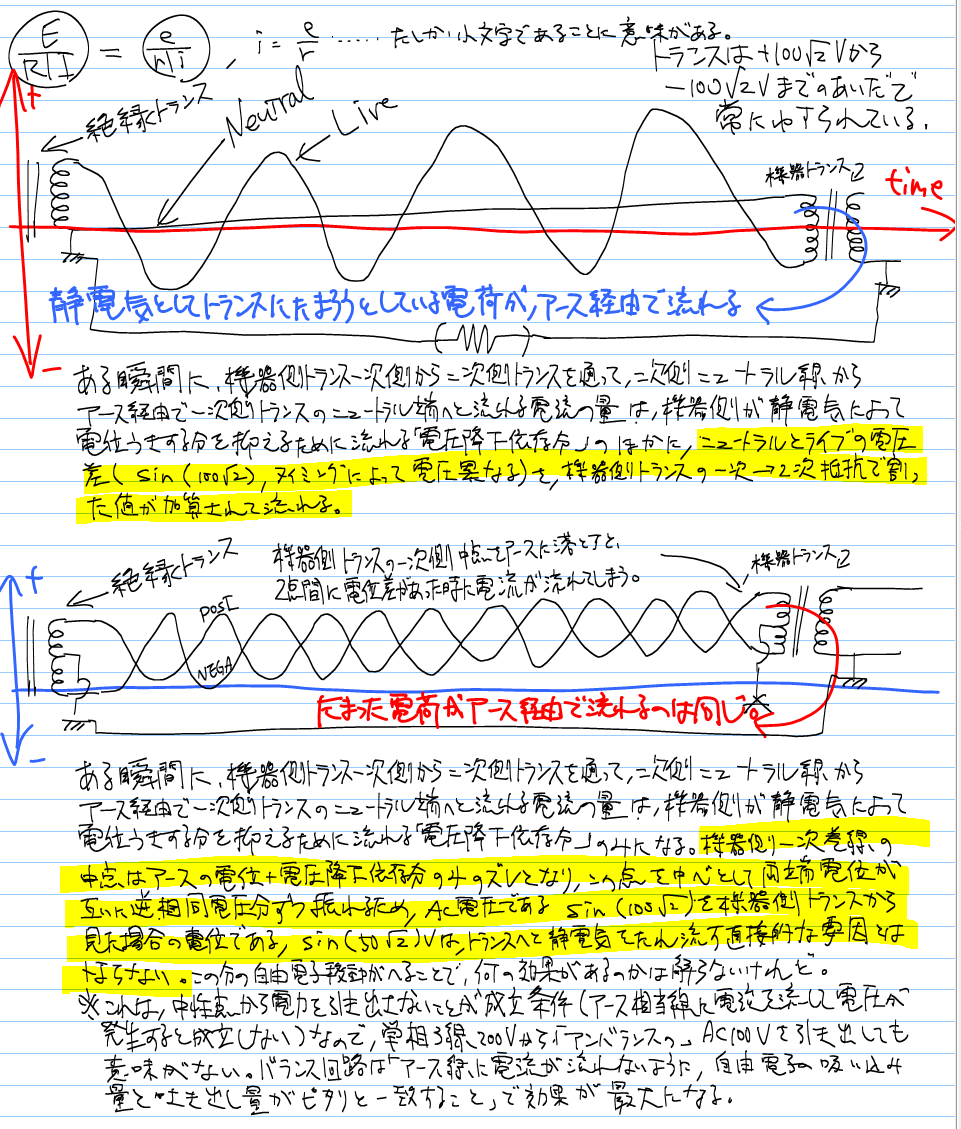 E/R|I = e/r|i , i = e/r ...... たしか小文字であることに意味がある。
トランスは+100√2Vから
-100√2Vまでのあいだで
常にゆすられている。
+
絶縁トランス
Neutral
Live
機器トランス
time
静電気としてトランスにたまろうとしている電荷が,アース経由で流れる
-
ある瞬間に、機器側トランス一次側から二次側トランスを通って,二次側ニュートラル線から
アース経由で一次側トランスのニュートラル端へと流れる電流の量は,機器側が静電気によって
電位うきする分を抑えるために流れる「電圧降下依存分」のほかに,ニュートラルとライブの電圧
差(sin(100√2),タイミングによって電圧異なる)を,機器側トランスの一次→2次抵抗で割っ
た値が加算されて流れる。
+
絶縁トランス
機器側トランスの一次側中点をアースに落とすと、
2点間に電位差があった時に電流が流れてしまう。
機器トランス
POSI
NEGA
たまった電荷がアース経由で流れるのは同じ。
-
ある瞬間に、機器側トランス一次側から二次側トランスを通って,二次側ニュートラル線から
アース経由で一次側トランスのニュートラル端へと流れる電流の量は,機器側が静電気によって
電位うきする分を抑えるために流れる「電圧降下依存分」のみになる。機器側一次巻線の
中点はアースの電位+電圧降下依存分のみのズレとなり,この点を中心として両端電位が
互いに逆相同電圧分ずつ振れるため,AC電圧である sin(100√2)を機器側トランスから
見た場合の電位である,sin(50√2)Vは,トランスへと静電気をたれ流す直接的な要因とは
ならない。この分の自由電子移動がへることで,何の効果があるのかは解らないけれど。
※これは,中性点から電力を引き出さないことが成立条件(アース相当線に電流を流して電圧が
発生すると成立しない)なので,単相3線200Vから「アンバランスの」AC100Vを引き出しても
意味がない。バランス回路は「アース線に電流が流れないように,自由電子の吸い込み
量と吐き出し量がピタリと一致すること」で効果が最大になる。